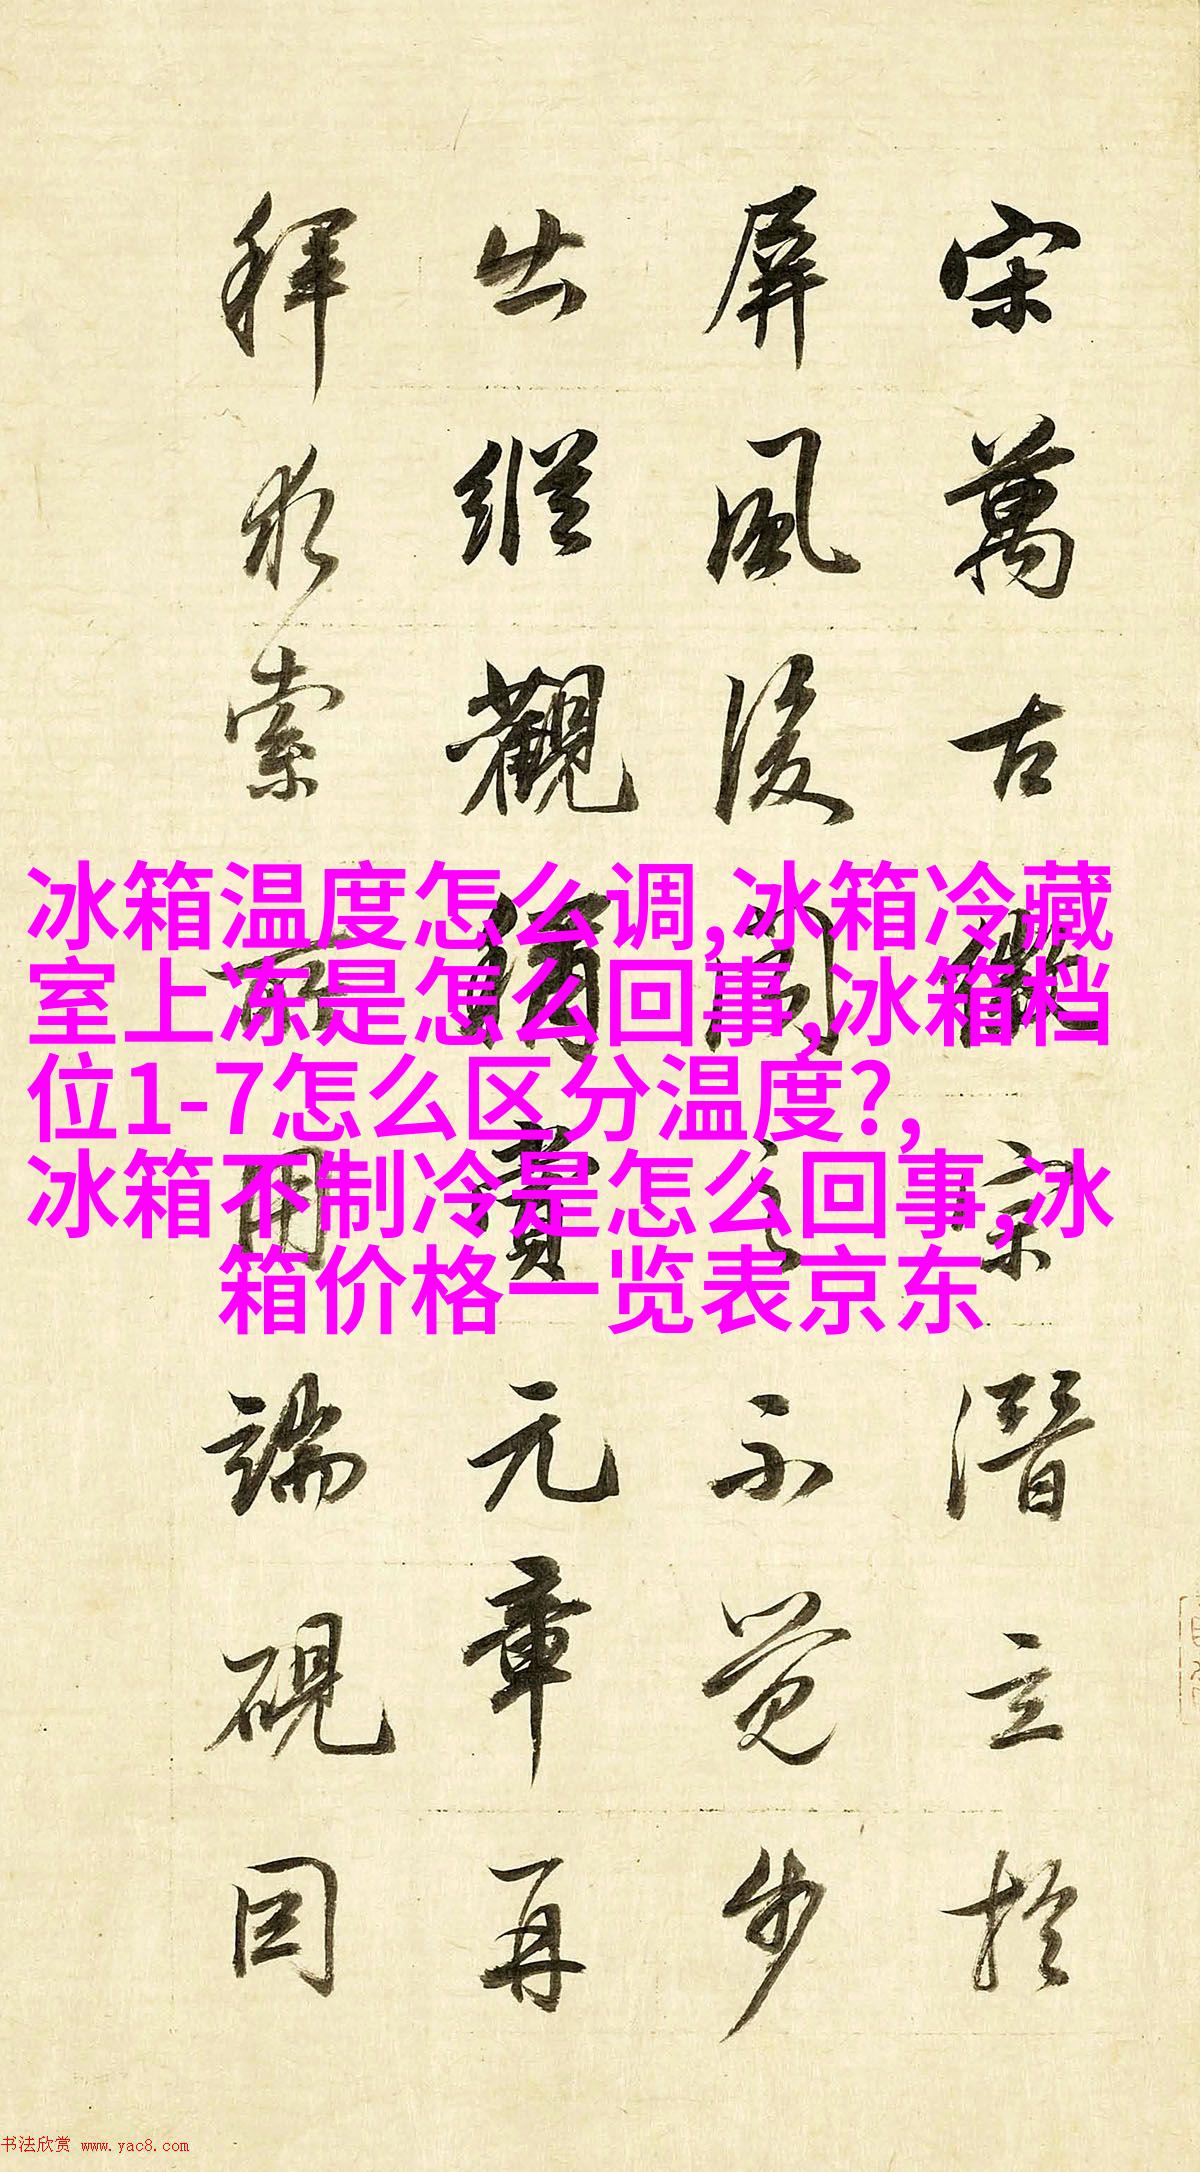 宋萬古徽宗潛立於
屏風後聞之不覺步
出縱觀稱賞元章再
拜求索所用端硯因
冰箱温度怎么调,冰箱冷藏
室上冻是怎么回事,冰箱档
位1-7怎么区分温度?,
冰箱不制冷是怎么回事,冰
箱价格一览表京东
书法欣赏 www.yac8.com